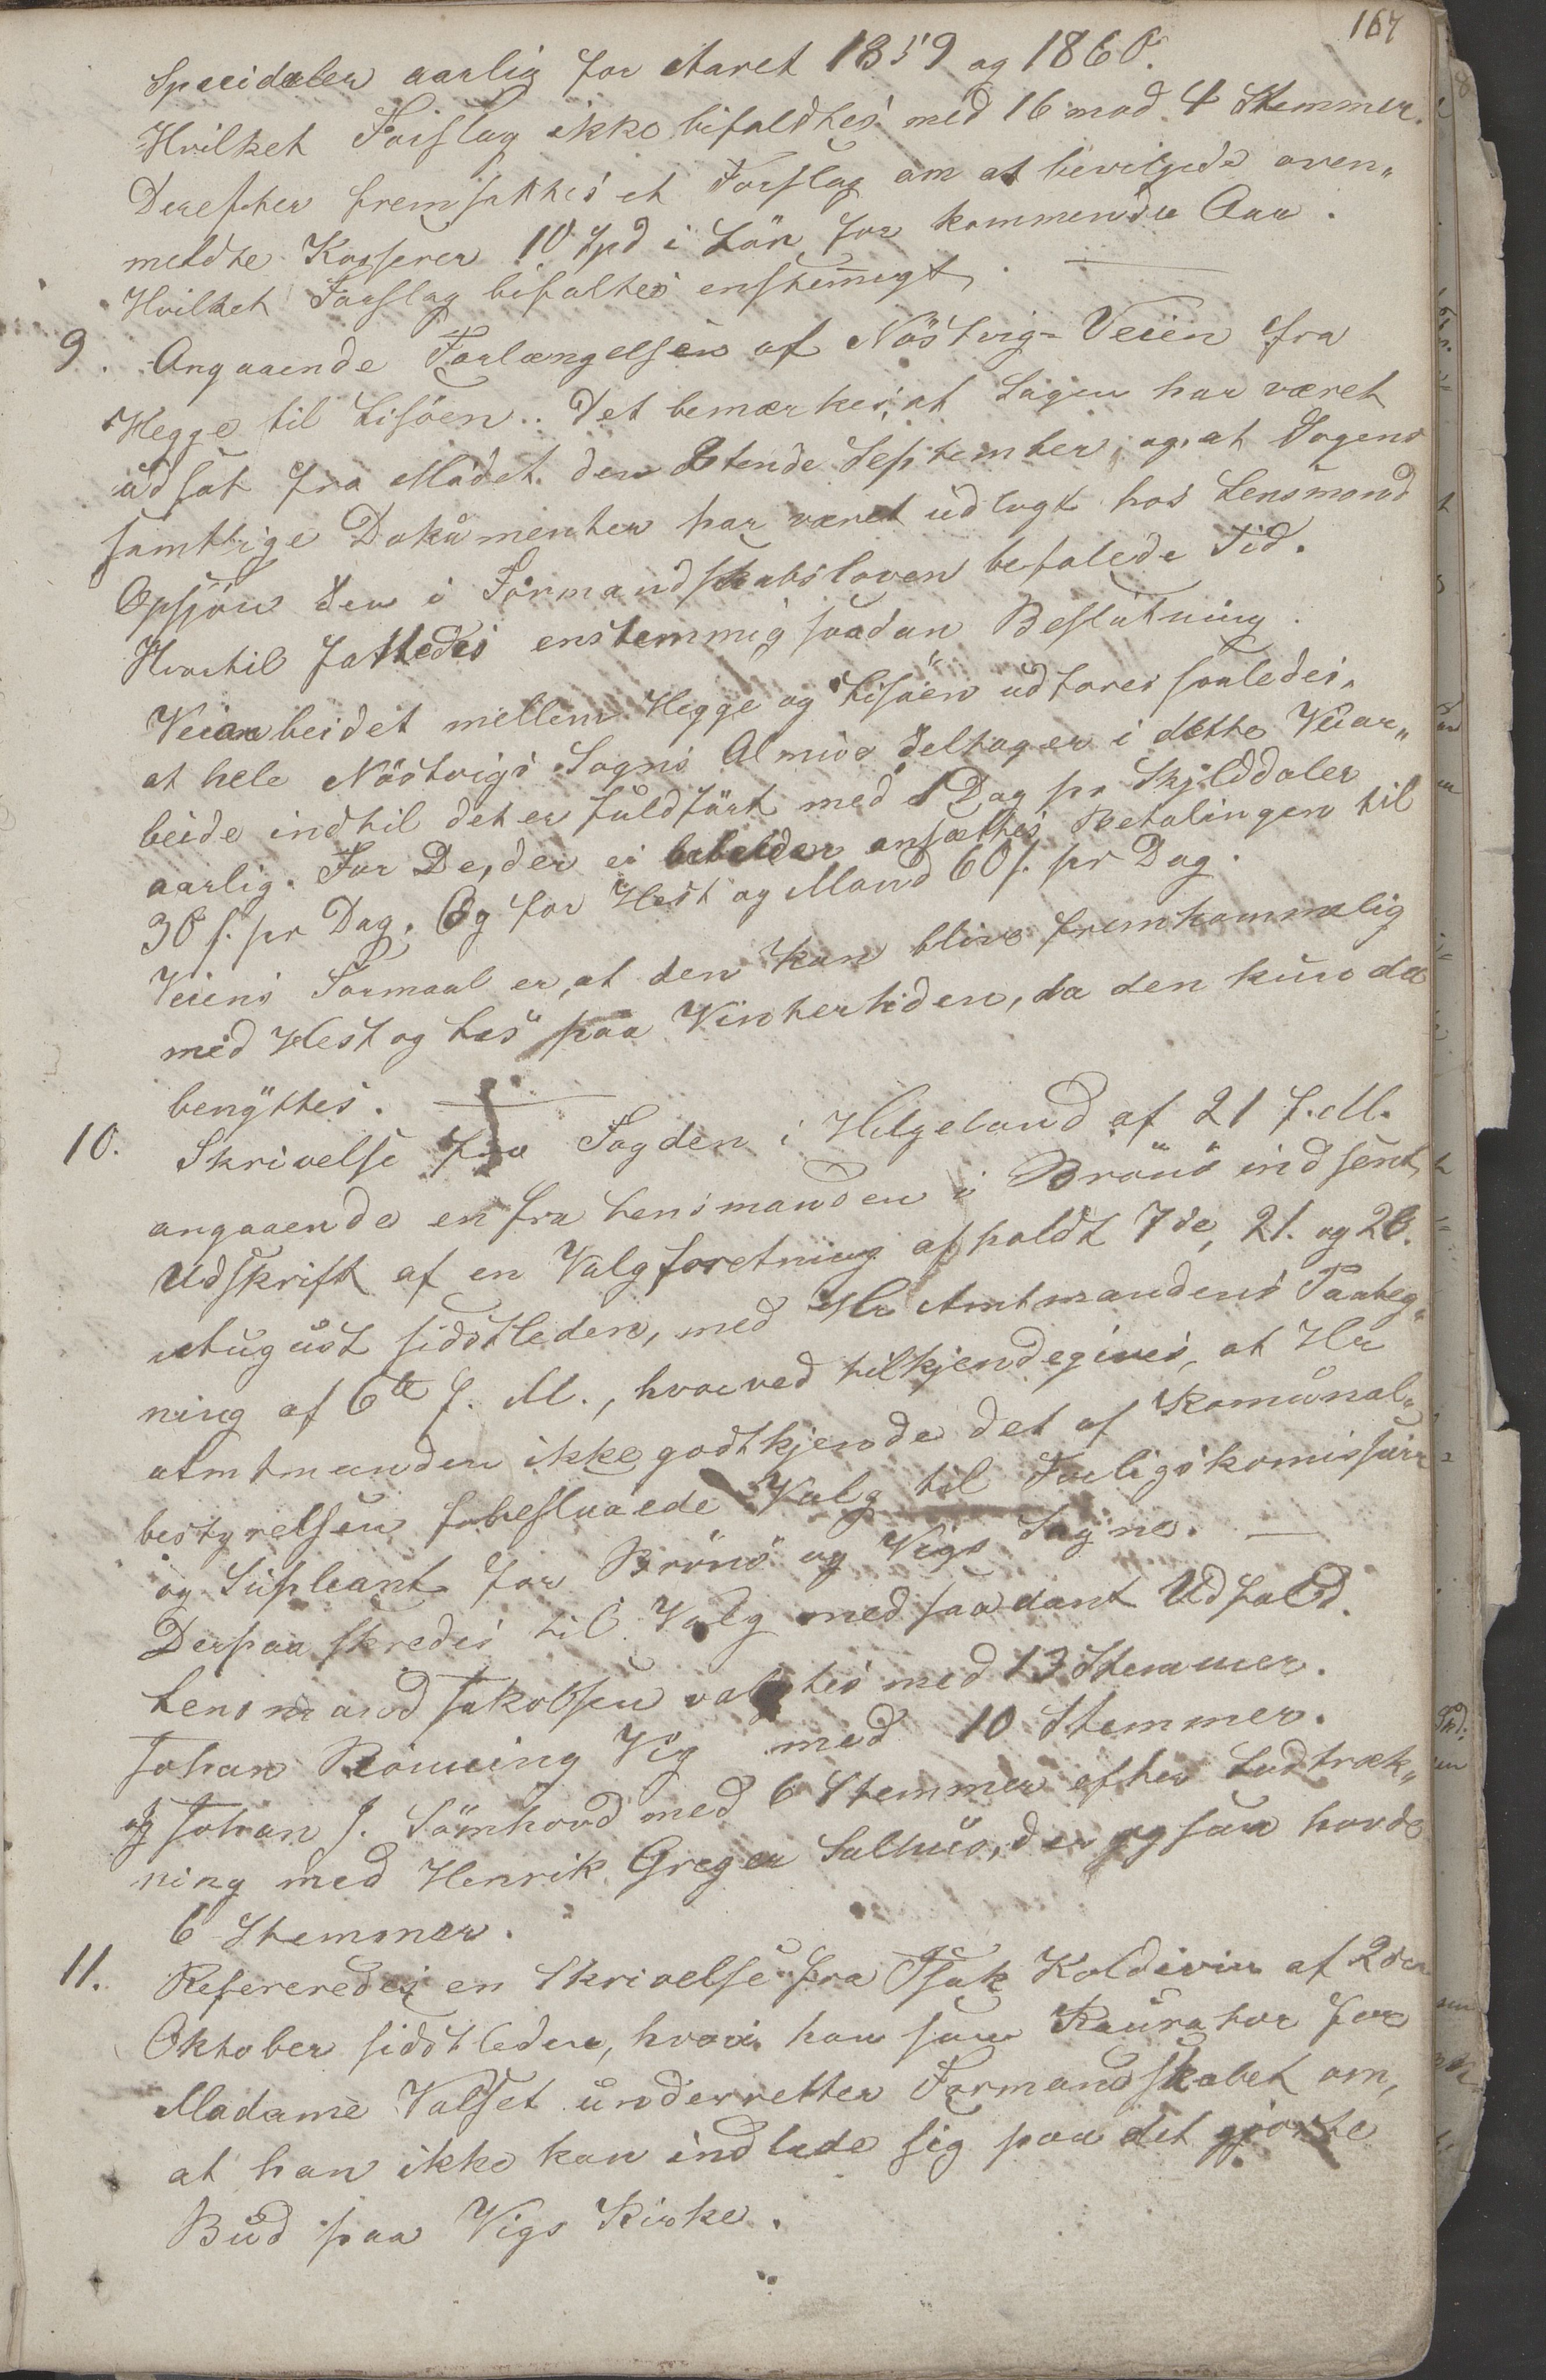 167
Speciedaler aarlig for Aaret 1859 og 1860.
Hvilket Forslag ikke bifaldtes med 16 mod 4 Stemmer.
Derefter fremsattes et Forslag om at bevilgede oven„
meldte Kasserer 10 Spd i Løn for kommende Aar.
Hvilket Forslag bifaltes enstemigt.
9. Angaaende Forlængelsen af Nöstvig-Veien fra
Hegge til Lisöen. Det bemærkes, at Sagen har været
udsat fra Mödet den 8tende September, og at Sagens
samtlige Dokumenter har været udlagt hos Lensmand
Opsjön den i Formandskabsloven befalede Tid.
Hvortil fattedes enstemmig saadan Beslutning.
Veiarbeidet mellem Hegge og Lisöen udföres saaledes,
at hele Nöstvigs Sogns Almue deltager i dette Veiar„
beide indtil det er fuldfört med 1 Dag pr Skylddaler
aarlig. For De, der ei arbeider ansættes Betalingen til
30 s. pr Dag. Og for Hest og Mand 60 s. pr Dag.
Veiens Formaal er, at den kan blive fremkommelig
med Hest og Læs paa Vintertiden, da den kun da
benyttes.
10. Skrivelse fra Fogden i Helgeland af 21 f. M.
angaaende en fra Lensmanden i Brönö indsent
Udskrift af en Valgforetning afholdt 7de, 21. og 28.
August sidstleden, med Hr Amtmandens Paateg„
ning af 6te f. M., hvorved tilkjendegives, at Hr
Amtmanden ikke godtkjende det af Komunal„
bestyrelsen foreslaaede Valg til Forligskomissair
og Supleant for Brönö og Vigs Sogne.
Derpaa skredes til Valg med saadant Udfald.
Lensmand Jakobsen valgtes med 13 Stemmer.
Johan Rönning Vig med 10 Stemmer.
og Johan J. Sömhovd med 6 Stemmer efter Lodtræk„
ning med Henrik Greger Salhus, der ogsaa havde
6 Stemmer.
11. Refereredes en Skrivelse fra Isak Koldevin af 2den
Oktober sidstleden, hvori han som Kurator for
Madame Valset underretter Formandskabet om,
at han ikke kan indlade sig paa det gjorte
Bud paa Vigs Kirke.